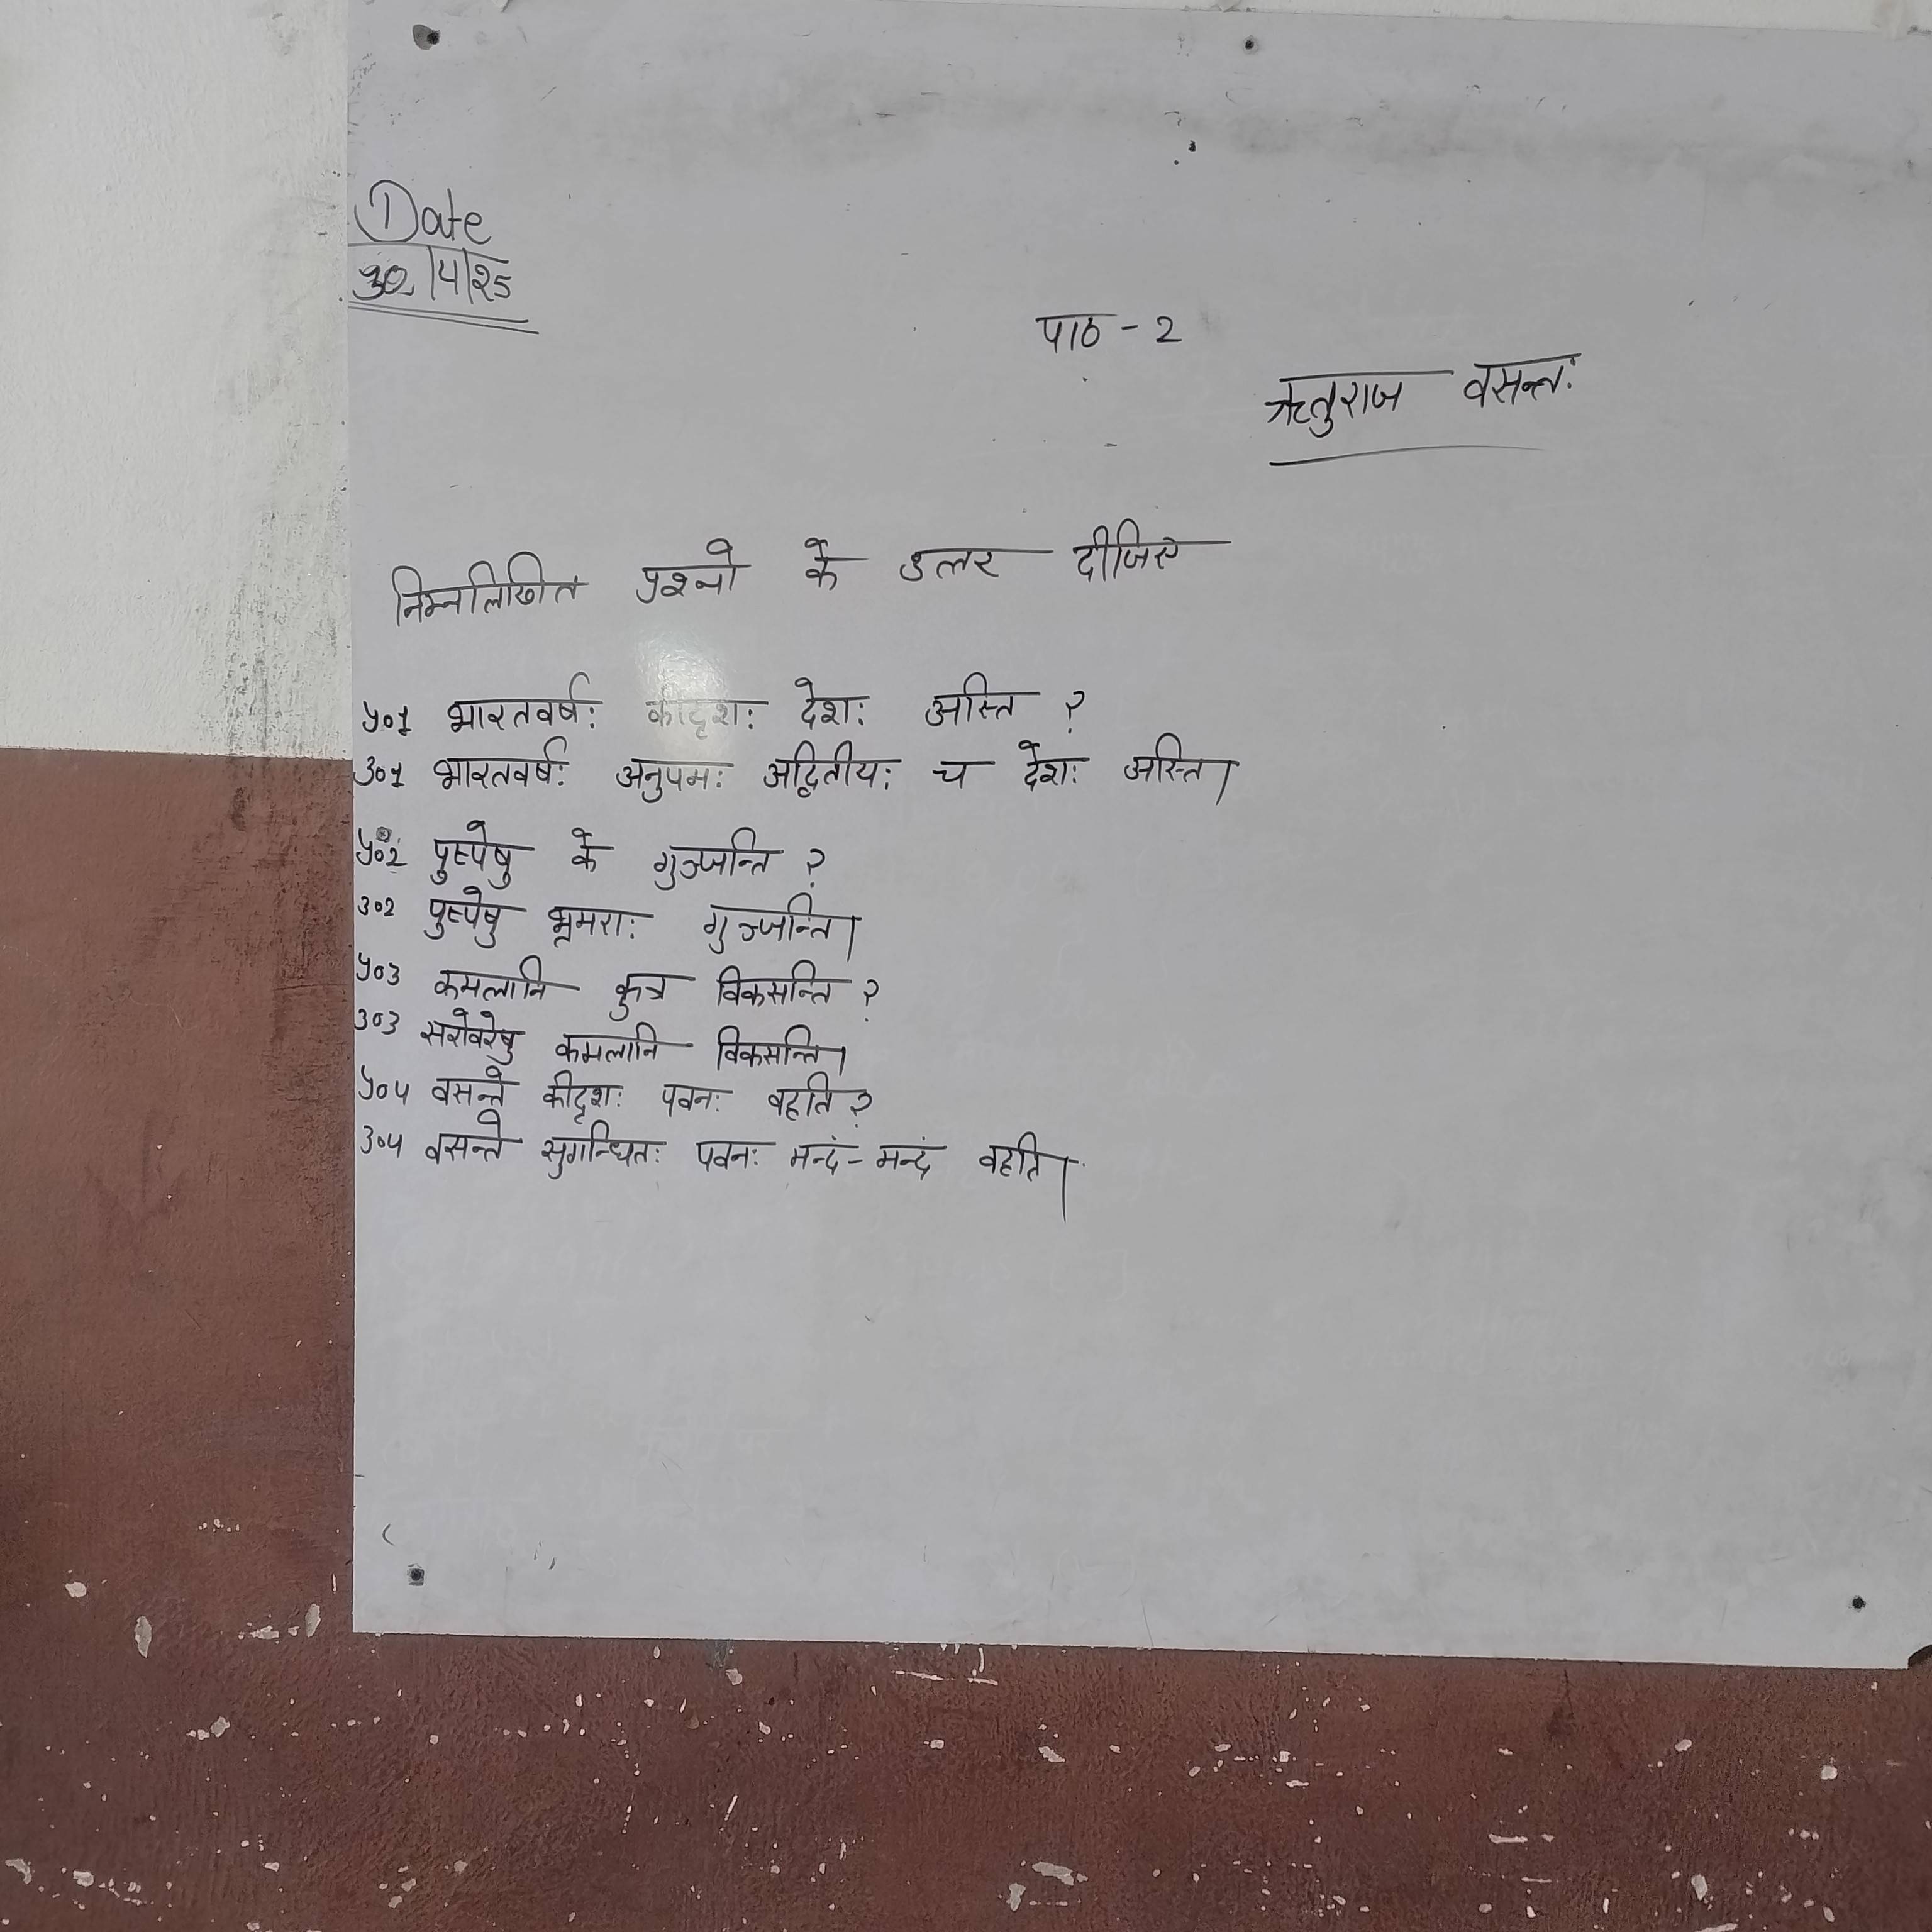 Date
30/4/25
पाठ - 2
ऋतुराज वसन्तः
निम्नलिखित प्रश्नो के उत्तर दीजिए
प्र०1 भारतवर्षः कीदृशः देशः अस्ति ?
उ०1 भारतवर्षः अनुपमः अद्वितीयः च देशः अस्ति।
प्र०2 पुष्पेषु के गुञ्जन्ति ?
उ०2 पुष्पेषु भ्रमराः गुञ्जन्ति।
प्र०3 कमलानि कुत्र विकसन्ति ?
उ०3 सरोवरेषु कमलानि विकसन्ति।
प्र०4 वसन्ते कीदृशः पवनः वहति ?
उ०4 वसन्ते सुगन्धितः पवनः मन्दं-मन्दं वहति।